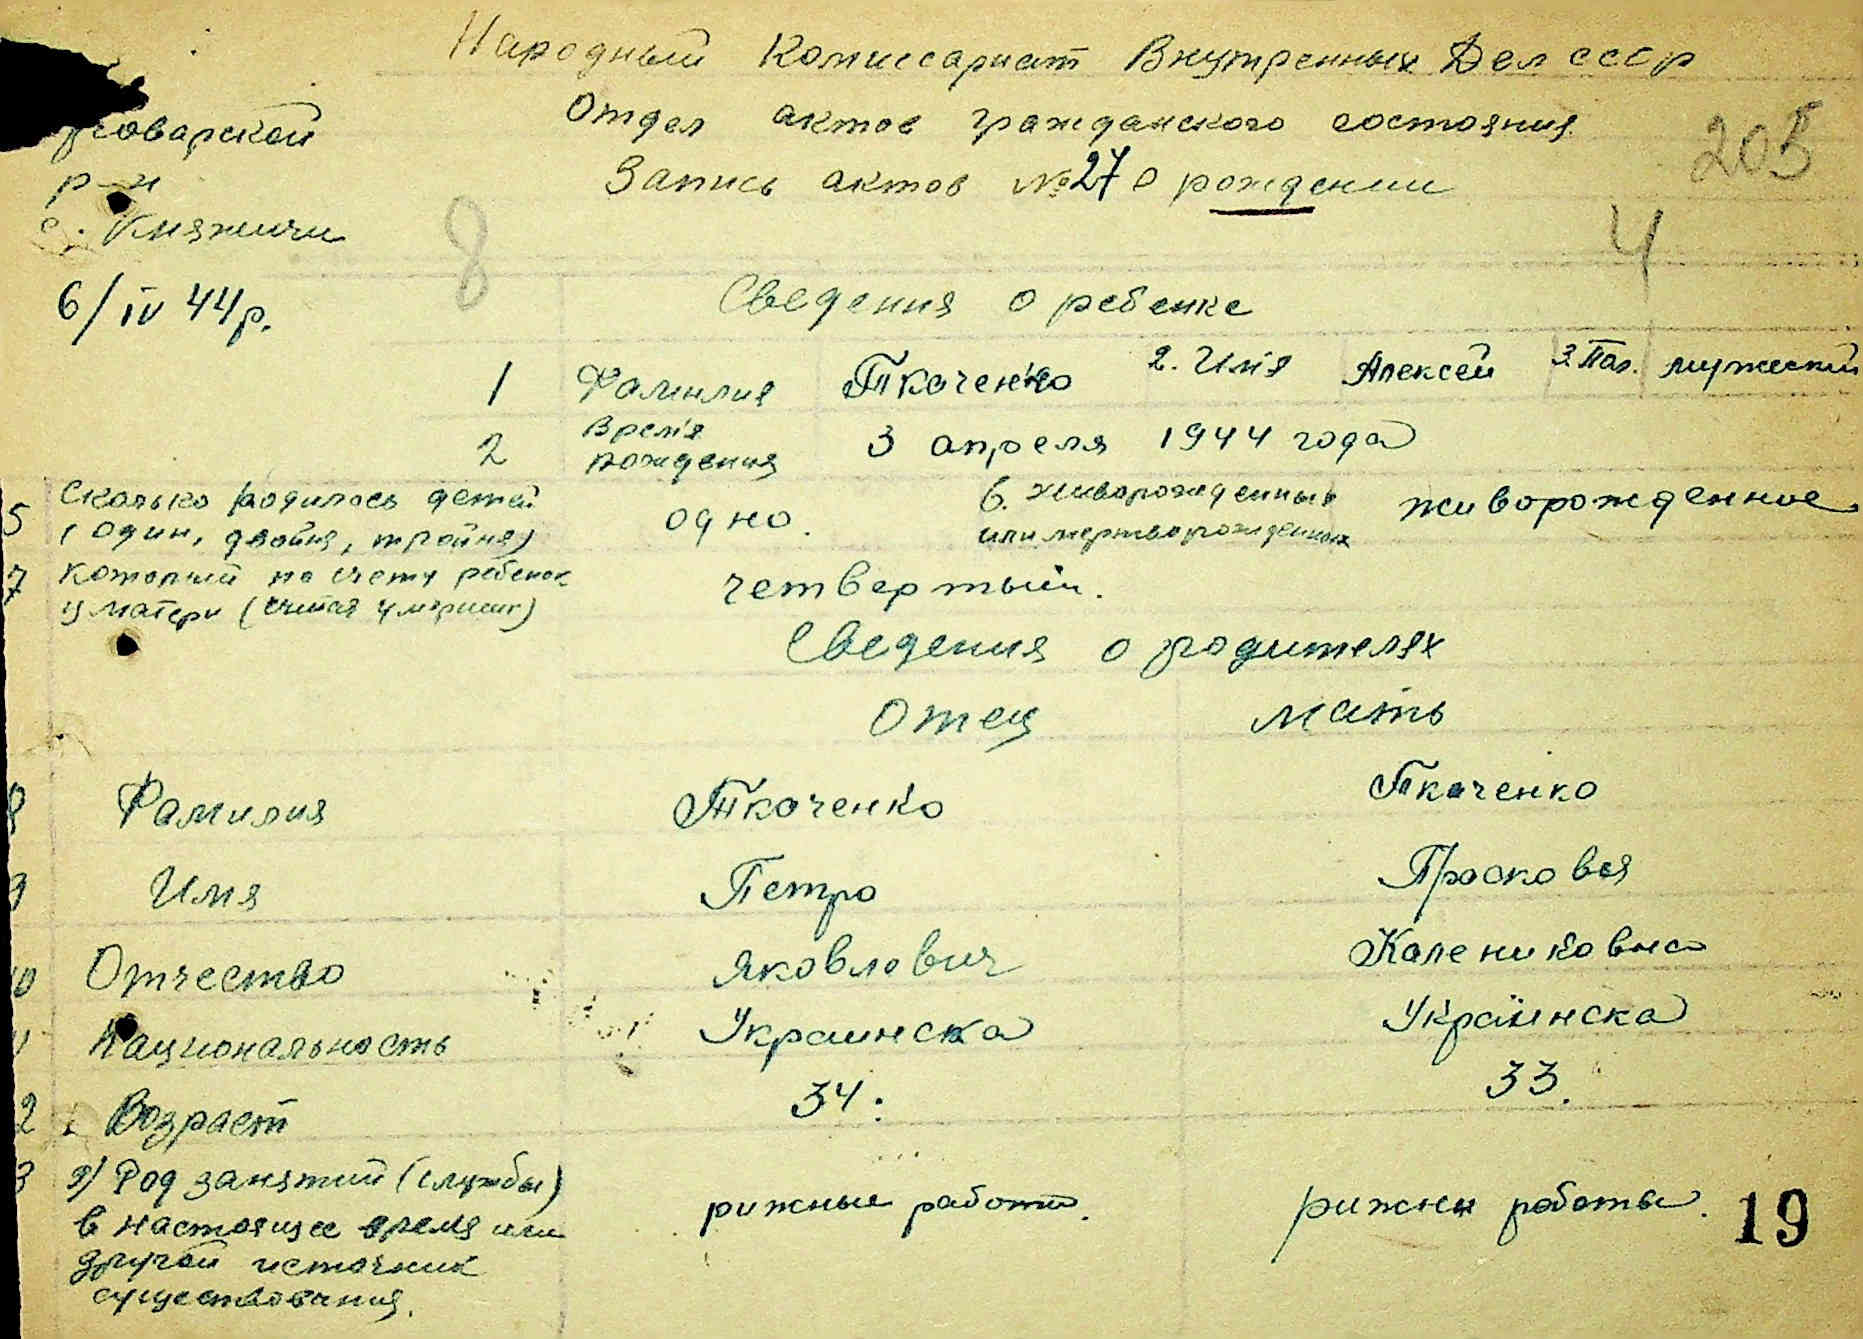 Народный Комиссариат Внутренных Дел СССР
Отдел актов гражданского состояния
Запись актов №27 о рождении
205
р-н
с. Княжичи
8
4
6/IV 44 р.
Сведения о ребенке
1 Фамилия Ткаченко 2. Имя Алексей 3. Пол. мужеский
2 Время рождения 3 апреля 1944 года
5 Сколько родилось детей
(один, двойня, тройня) одно.
6. живорожденных
или мертворожденных живорожденное
7 который по счету ребенок
у матери (считая умерших) четвертый.
Сведения о родителях
Отец мать
8 Фамилия Ткаченко Ткаченко
9 Имя Петро Прасковья
10 Отчество Яковлович Калениковна
Национальность Украинска Украинска
2 Возраст 34. 33.
3 а) Род занятий (службы)
в настоящее время или
другой источник
существования.
рижные работы. рижны работы.
19